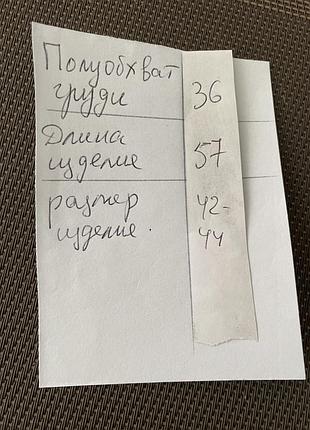 Полуобхват
груди 36
Длина
изделие 57
размер 42-
изделие. 44